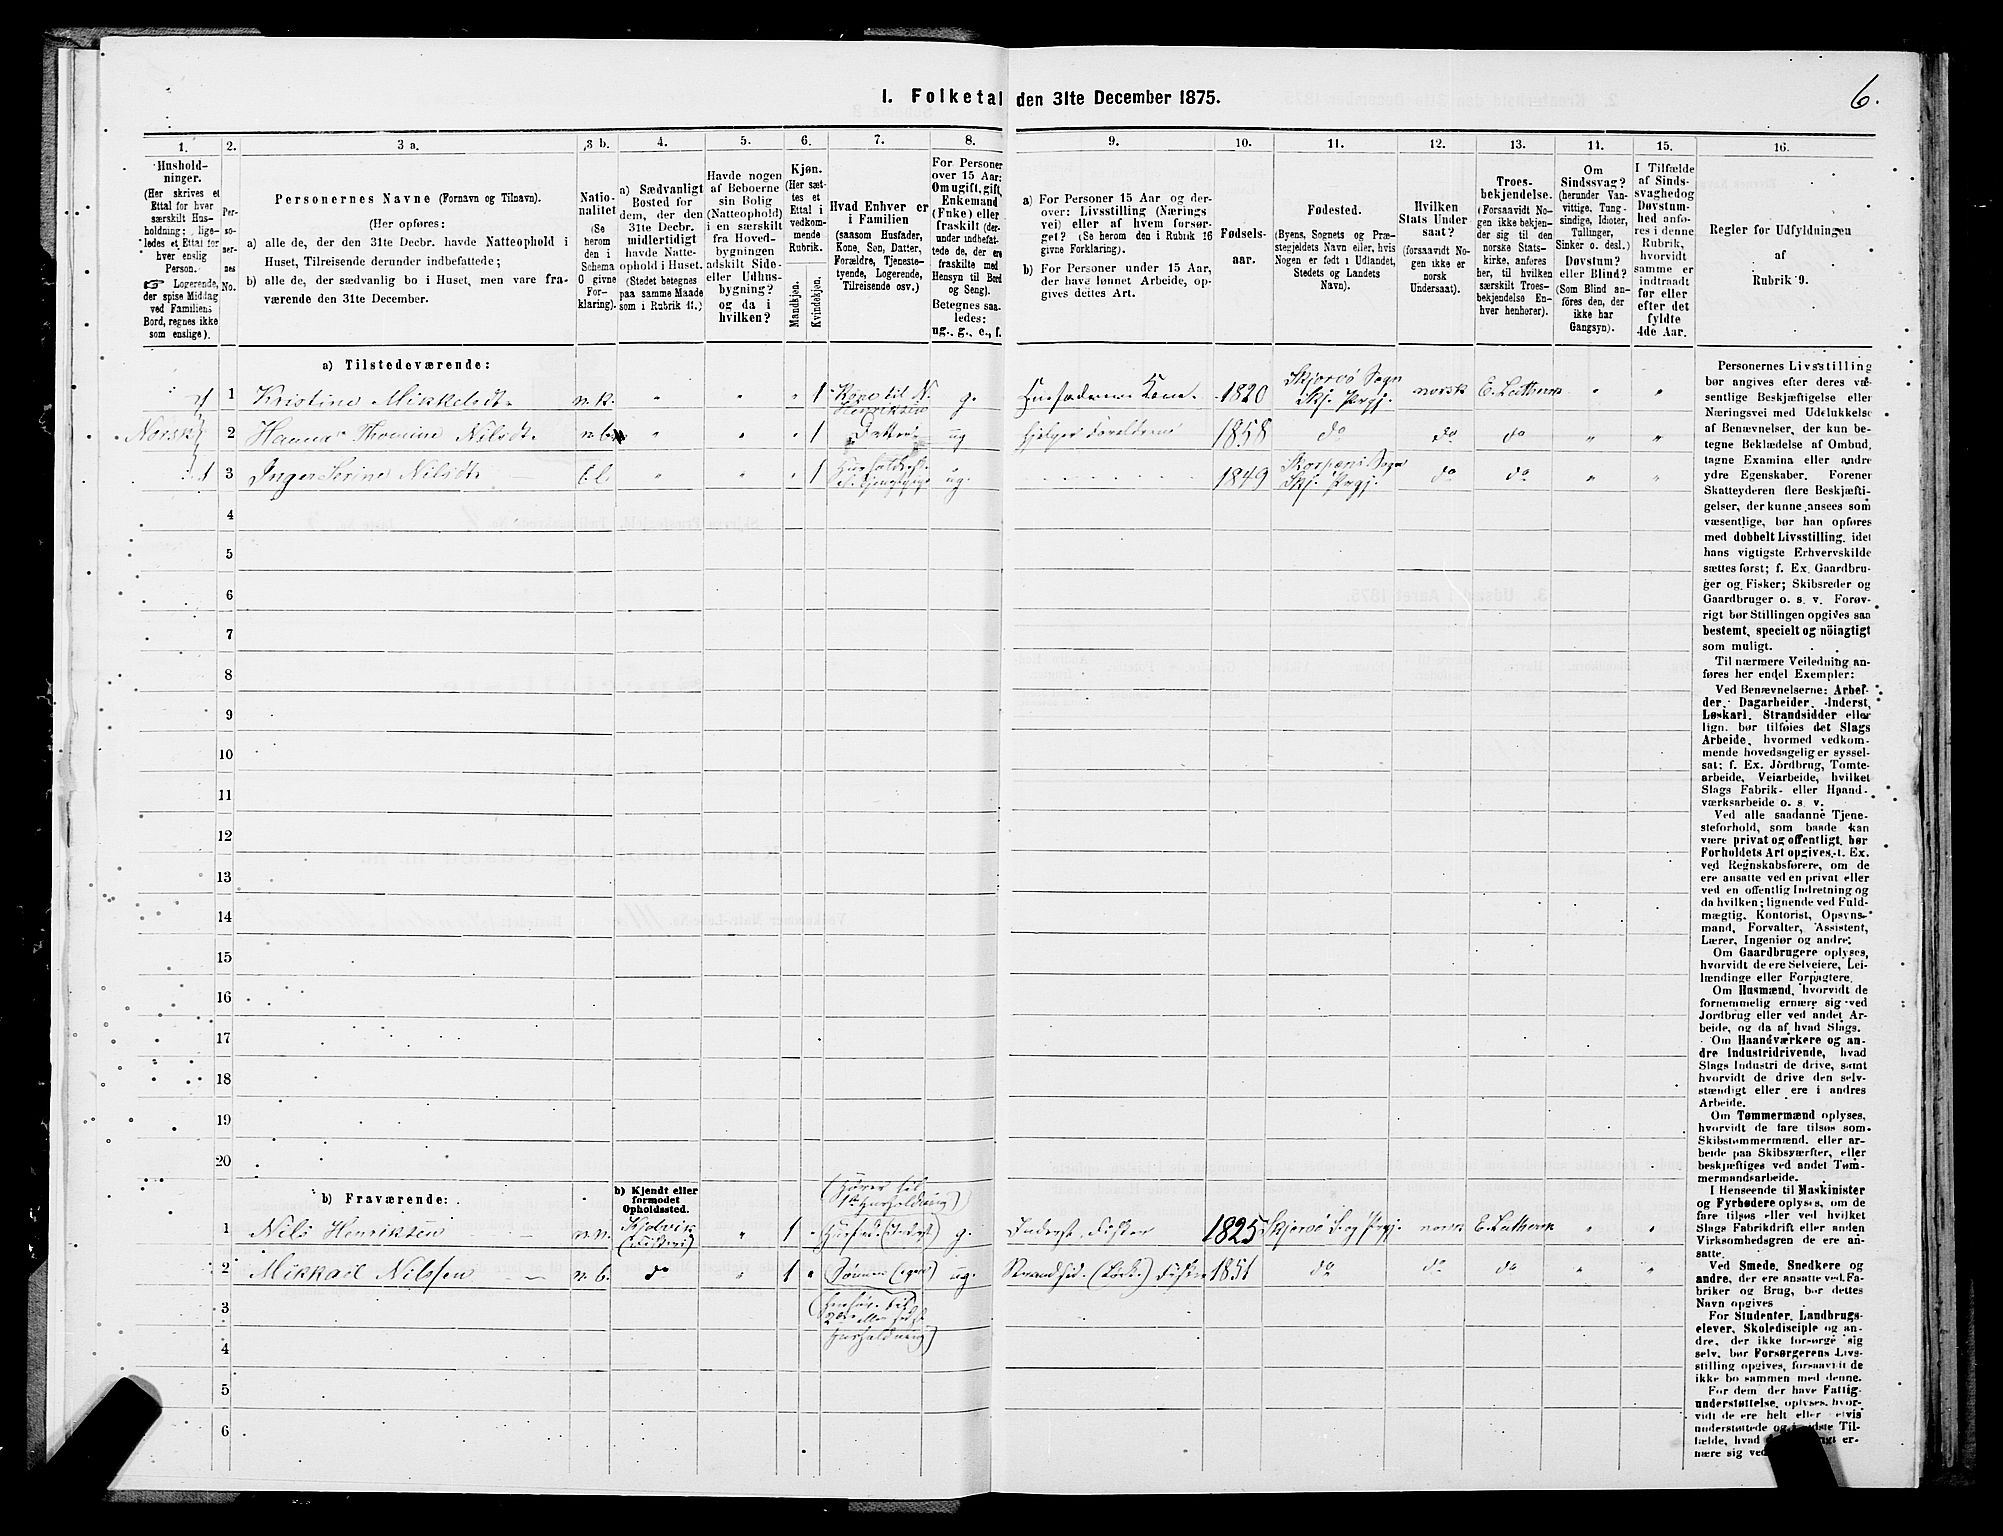 6.
1. Folketal den 31te December 1875.
1.
Hushold-
ninger.
(Her skrives et
Ettal for hver
særskilt Hus-
holdning; lige-
ledes et Ettal for
hver enslig
Person.
☞ Logerende,
der spise Middag
ved Familiens
Bord, regnes ikke
som enslige).
2.
Per-
so-
ner-
nes
No.
3 a.
Personernes Navne (Fornavn og Tilnavn).
(Her opføres:
a) alle de, der den 31te Decbr. havde Natteophold i
Huset, Tilreisende derunder indbefattede;
b) alle de, der sædvanlig bo i Huset, men vare fra-
værende den 31te December.
3 b.
Natio-
nalitet
(Se
herom
den i
Schema
O givne
For-
klaring).
4.
a) Sædvanligt
Bosted for
dem, der den
31te Decbr.
midlertidigt
havde Natte-
ophold i Huset.
(Stedet betegnes
paa samme Maade
som i Rubrik 11.)
5.
Havde nogen
af Beboerne
sin Bolig
(Natteophold)
i en særskilt
fra Hoved-
bygningen
adskilt Side-
eller Udhus-
bygning?
og da i
hvilken?
6.
Kjøn.
(Her sæt-
tes et
Ettal i
vedkom-
mende
Rubrik.
Mandkjøn.
Kvindekjøn.
7.
Hvad Enhver er
i Familien
(saasom Husfader,
Kone, Søn, Datter,
Forældre, Tjeneste-
tyende, Logerende,
Tilreisende osv.)
8.
For Personer
over 15 Aar:
Om ugift, gift,
Enkemand
(Enke) eller
fraskilt (der-
under indbefat-
tede de, der ere
fraskilte med
Hensyn til Bord
og Seng).
Betegnes saa-
ledes:
ug., g., e., f.
9.
a) For Personer 15 Aar og der-
over: Livsstilling (Nærings-
vei) eller af hvem forsør-
get? (Se herom den i Rubrik 16
givne Forklaring).
b) For Personer under 15 Aar,
der have lønnet Arbeide, op-
gives dettes Art.
10.
Fødsels-
aar.
11.
Fødested.
(Byens, Sognets og Præ-
stegjeldets Navn eller, hvis
Nogen er født i Udlandet,
Stedets og Landets
Navn).
12.
Hvilken
Stats Under
saat?
(forsaavidt No-
gen ikke er
norsk
Undersaat).
13.
Troes-
bekjendelse.
(Forsaavidt No-
gen ikke bekjen-
der sig til den
norske Stats-
kirke, anføres
her, til hvilken
særskilt Troes-
bekjendelse En-
hver henhører).
14.
Om
Sindssvag?
(herunder Van-
vittige, Tung-
sindige, Idioter,
Tullinger,
Sinker o. desl.)
Døvstum?
eller Blind?
(Som Blind an-
føres den, der
ikke har
Gangsyn).
15.
I Tilfælde
af Sinds-
svaghed og
Døvstum-
hed anfø-
res i denne
Rubrik,
hvorvidt
samme er
indtraadt
før eller
efter det
fyldte
4de Aar.
16.
Regler for Udfyldningen
af
Rubrik 9.
a) Tilstedeværende:
1 Kristine Mikkelsdt. n.k. " " " 1 Kone til N. Henriksen g. Husfaderens Kone. 1820 Skjervö Sogn Skj. Prgj. norsk E. Luthersk " "
Norsk 2 Hanna Thomine Nilsdt. " " " 1 Datter ug hjelper Forældrene 1858 do do do " "
3 Inger Serine Nilsdt " " " 1 ug. 1849 Sogn Skj. Prgj. do do " "
4
5
6
7
8
9
10
11
12
13
14
15
16
17
18
19
20
b) Fraværende:
b) Kjendt eller
formodet
Opholdssted.
(hører til
1ste Husholdning)
1 Nils Henriksen n.n. Kjelvik " 1 " g. Inderst, Fisker 1825 Skjervö Sog Prgj. norsk E. Luthersk " "
2 Mikkael Nilssen n.b. do " 1 " ug. Strandsid. Fisker 1851 do do do " "
3
Husholdning)
4
5
6
Personernes Livsstilling
bør angives efter deres væ-
sentlige Beskjæftigelse eller
Næringsvei med Udelukkelse
af Benævnelser, der kun be-
tegne Beklædelse af Ombud,
tagne Examina eller andre
ydre Egenskaber. Forener
Skatteyderen flere Beskjæfti-
gelser, der kunne ansees som
væsentlige, bør han opføres
med dobbelt Livsstilling, idet
hans vigtigste Erhvervskilde
sættes først; f. Ex. Gaardbru-
ger og Fisker; Skibsreder og
Gaardbruger o. s. v. Forøv-
rigt bør Stillingen opgives saa
bestemt, specielt og nöiagtigt
som muligt.
Til nærmere Veiledning an-
føres her endel Exempler:
Ved Benævnelserne: Arbei-
der, Dagarbeider, Inderst,
Løskarl, Strandsidder eller
lign. bør tilføies det Slags
Arbeide, hvormed vedkom-
mende hovedsagelig er syssel-
sat; f. Ex. Jordbrug, Tomte-
arbeide, Veiarbeide, hvilket
Slags Fabrik- eller Haand-
værksarbeide o. s. v.
Ved alle saadanne Tjene-
steforhold, som baade kan
være privat og offentligt, bør
Forholdets Art opgives, f. Ex.
ved Regnskabsførere, om de
ere ansatte ved en privat eller
ved en offentlig Indretning og
da hvilken; lignende ved Fuld-
mægtig, Kontorist, Opsyns-
mand, Forvalter, Assistent,
Lærer, Ingeniør og andre.
Om Gaardbrugere oplyses,
hvorvidt de ere Selveiere, Lei-
lændinge eller Forpagtere.
Om Husmænd, hvorvidt de
fornemmelig ernære sig ved
Jordbrug eller ved andet Ar-
beide, og da af hvad Slags.
Om Haandværkere og an-
dre Industridrivende, hvad
Slags Industri de drive, samt
hvorvidt de drive den selv-
stændigt eller ere i andres
Arbeide.
Om Tømmermænd oplyses,
hvorvidt de fare tilsøs som
Skibstømmermænd, eller ar-
beide paa Skibsværfter, eller
beskjæftiges ved andet Tøm-
mermandsarbeide.
I Henseende til Maskinister
og Fyrbødere oplyses, om de
fare tilsøs eller ved hvilket
Slags Fabrikdrift eller anden
Virksomhedsgren de ere an-
satte.
Ved Smede, Snedkere og
andre, der ere ansatte ved Fa-
briker og Brug, bør dettes
Navn opgives
For Studenter, Landbrugs-
elever, Skoledisciple og an-
dre, der ikke forsørge sig
selv, bør Forsørgerens Livs-
stilling opgives, forsaavidt de
ikke bo sammen med denne.
For dem der have Fattig-
understøttelse, oplyses, hvor-
vidt de ere helt eller
understøttede og i sidste Til-
fælde, hvad er-
nære sig ved